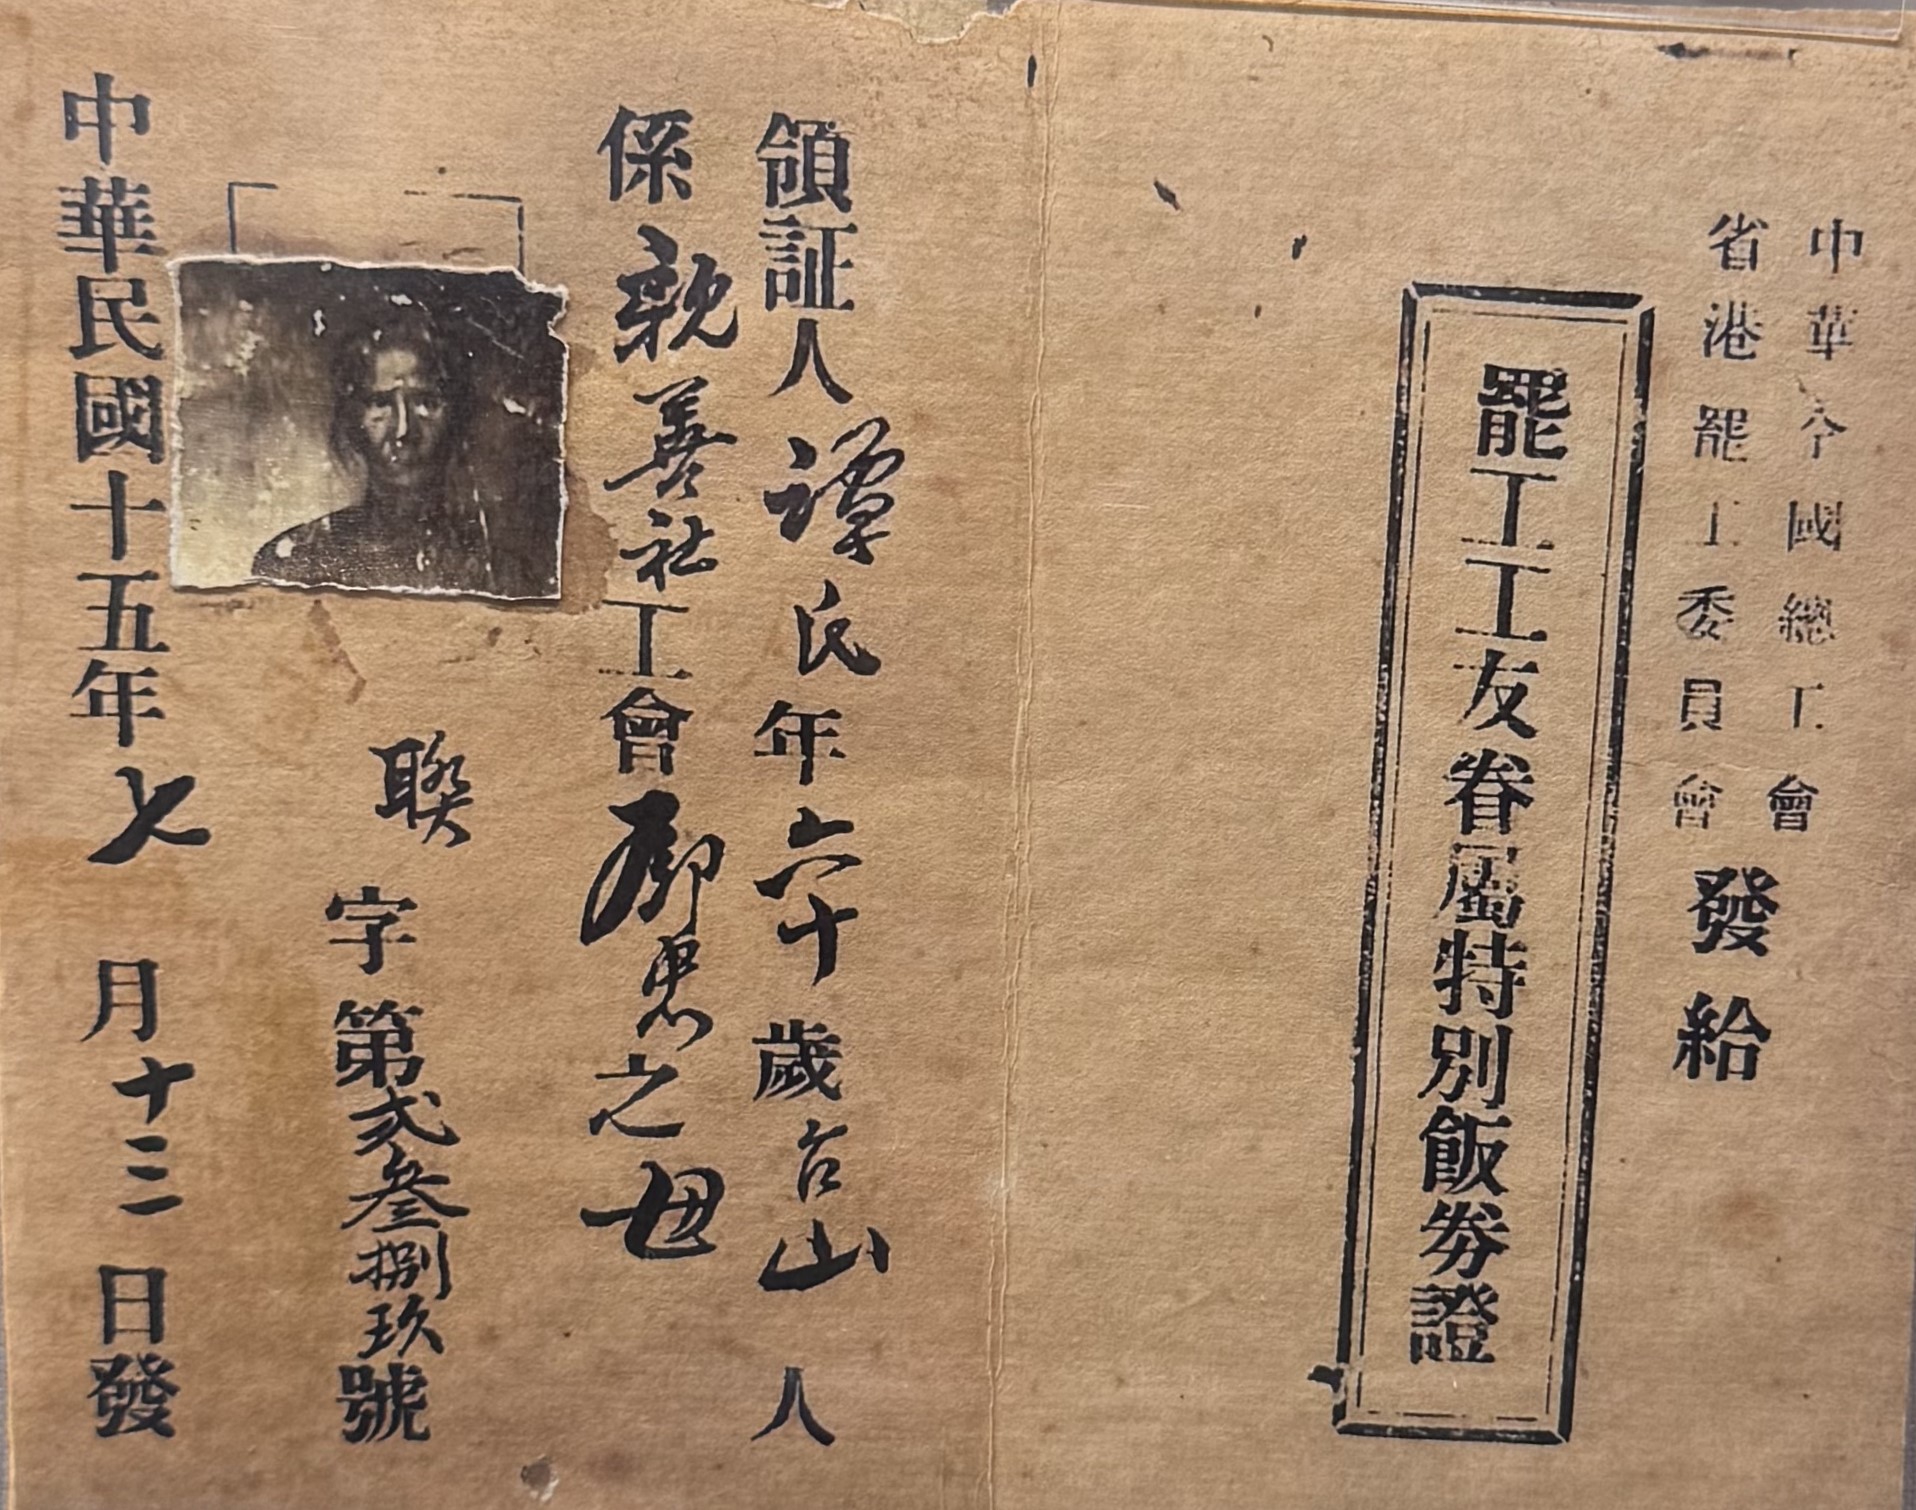 中華全國總工會
省港罷工委員會
發給
罷工工友眷屬特別飯券證
領証人譚氏年六十歲台山人
係親善社工會鄺惠之母
聯字第弍叁捌玖號
中華民國十五年七月十三日發